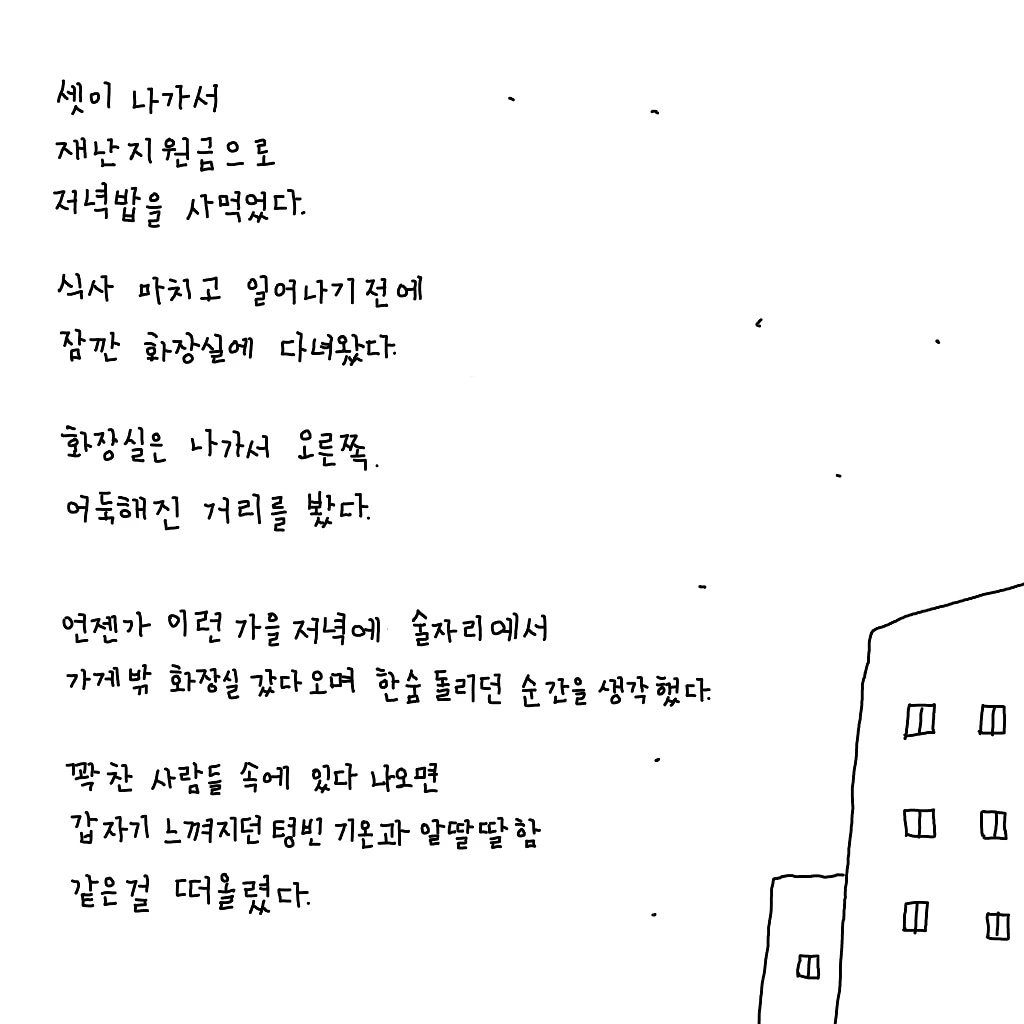 셋이 나가서
재난지원금으로
저녁밥을 사먹었다.
식사 마치고 일어나기전에
잠깐 화장실에 다녀왔다.
화장실은 나가서 오른쪽.
어둑해진 거리를 봤다.
언젠가 이런 가을 저녁에 술자리에서
가게밖 화장실 갔다오며 한숨 돌리던 순간을 생각했다.
꽉 찬 사람들 속에 있다 나오면
갑자기 느껴지던 텅빈 기온과 알딸딸함
같은걸 떠올렸다.